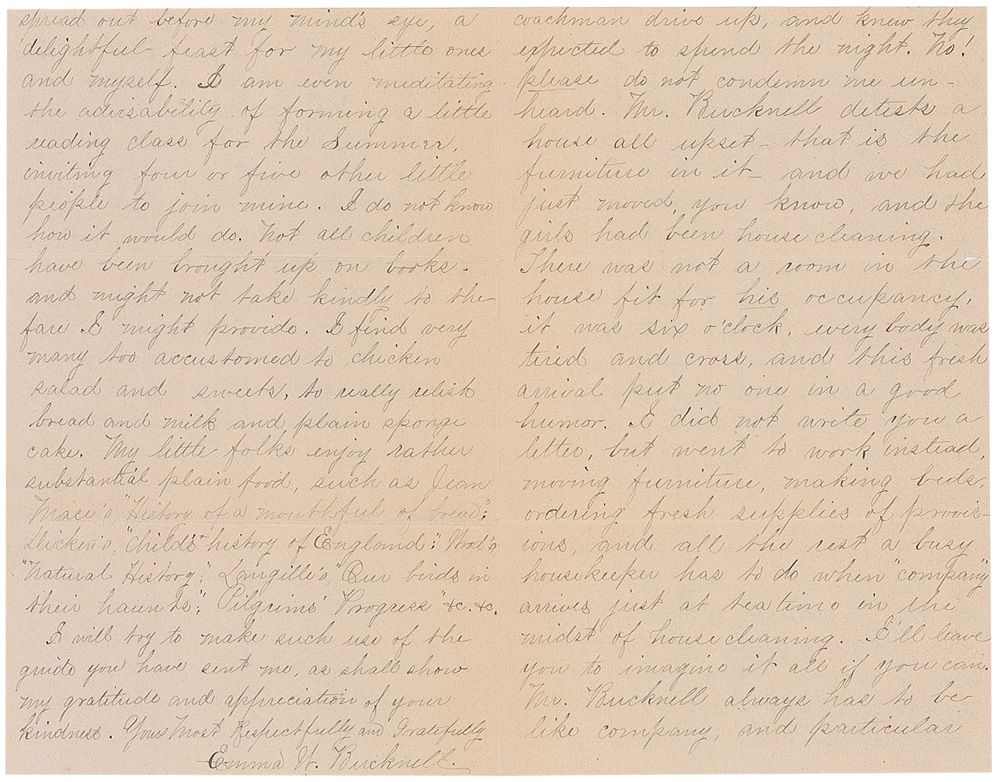 spread out before my mind's eye, a
delightful feast for my little ones
and myself. I am even meditating
the advisability of forming a little
reading class for the Summer,
inviting four or five other little
people to join mine. I do not know
how it would do. Not all children
have been brought up on books.
and might not take kindly to the
fare I might provide. I find very
many too accustomed to chicken
salad and sweets, to really relish
bread and milk and plain sponge
cake. My little folks enjoy rather
substantial plain food, such as Jean
Macé's, "History of a mouthful of bread";
Dicken's, "Child's history of England"; Wood's
"Natural History"; Langille's, "Our birds in
their haunts"; Pilgrims' Progress" &c. &c.
I will try to make such use of the
guide you have sent me, as shall show
my gratitude and appreciation of your
kindness. Yours Most Respectfully and Gratefully
Emma W. Bucknell.
coachman drive up, and knew they
expected to spend the night. No!
please do not condemn me un-
heard. Mr. Bucknell detests a
house all upset - that is the
furniture in it - and we had
just moved, you know, and the
girls had been house cleaning.
There was not a room in the
house fit for his occupancy,
it was six o'clock, every body was
tired and cross, and this fresh
arrival put no one in a good
humor. I did not write you a
letter, but went to work instead,
moving furniture, making beds,
ordering fresh supplies of provis-
ions, and all the rest a busy
housekeeper has to do when "company"
arrives just at tea time in the
midst of house cleaning. I'll leave
you to imagine it all if you can.
Mr. Bucknell always has to be
like company, and particular